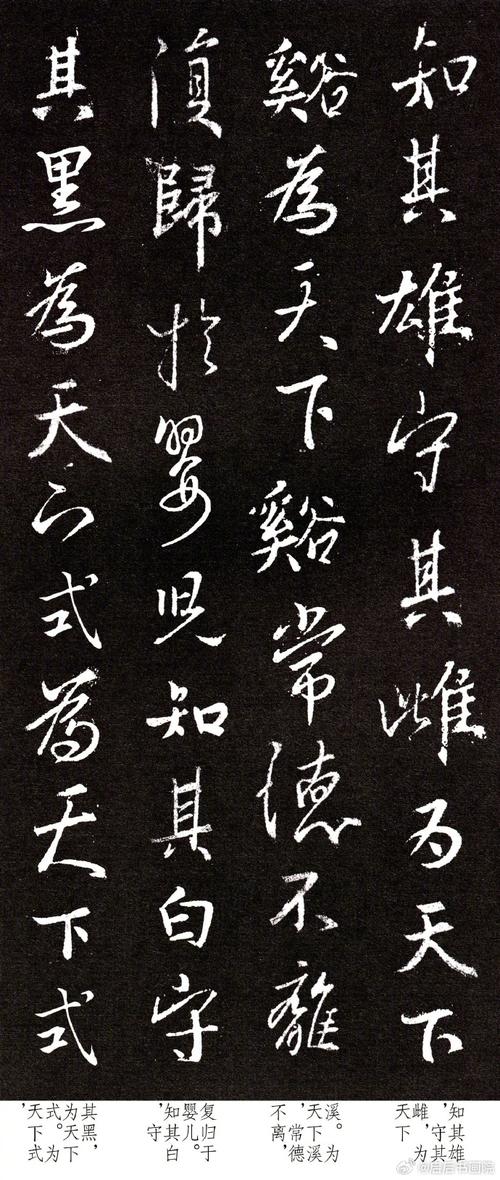 知其雄守其雌為天下
谿為天下谿常德不離
復歸於嬰兒知其白守
其黑為天下式為天下式
知其雄
，守其
雌，为
天下
溪。为
天下溪
，常德
不离，
复归于
婴儿。
知其白
，守
其黑，
为天下
式。为
天下式
，
@后后书画院